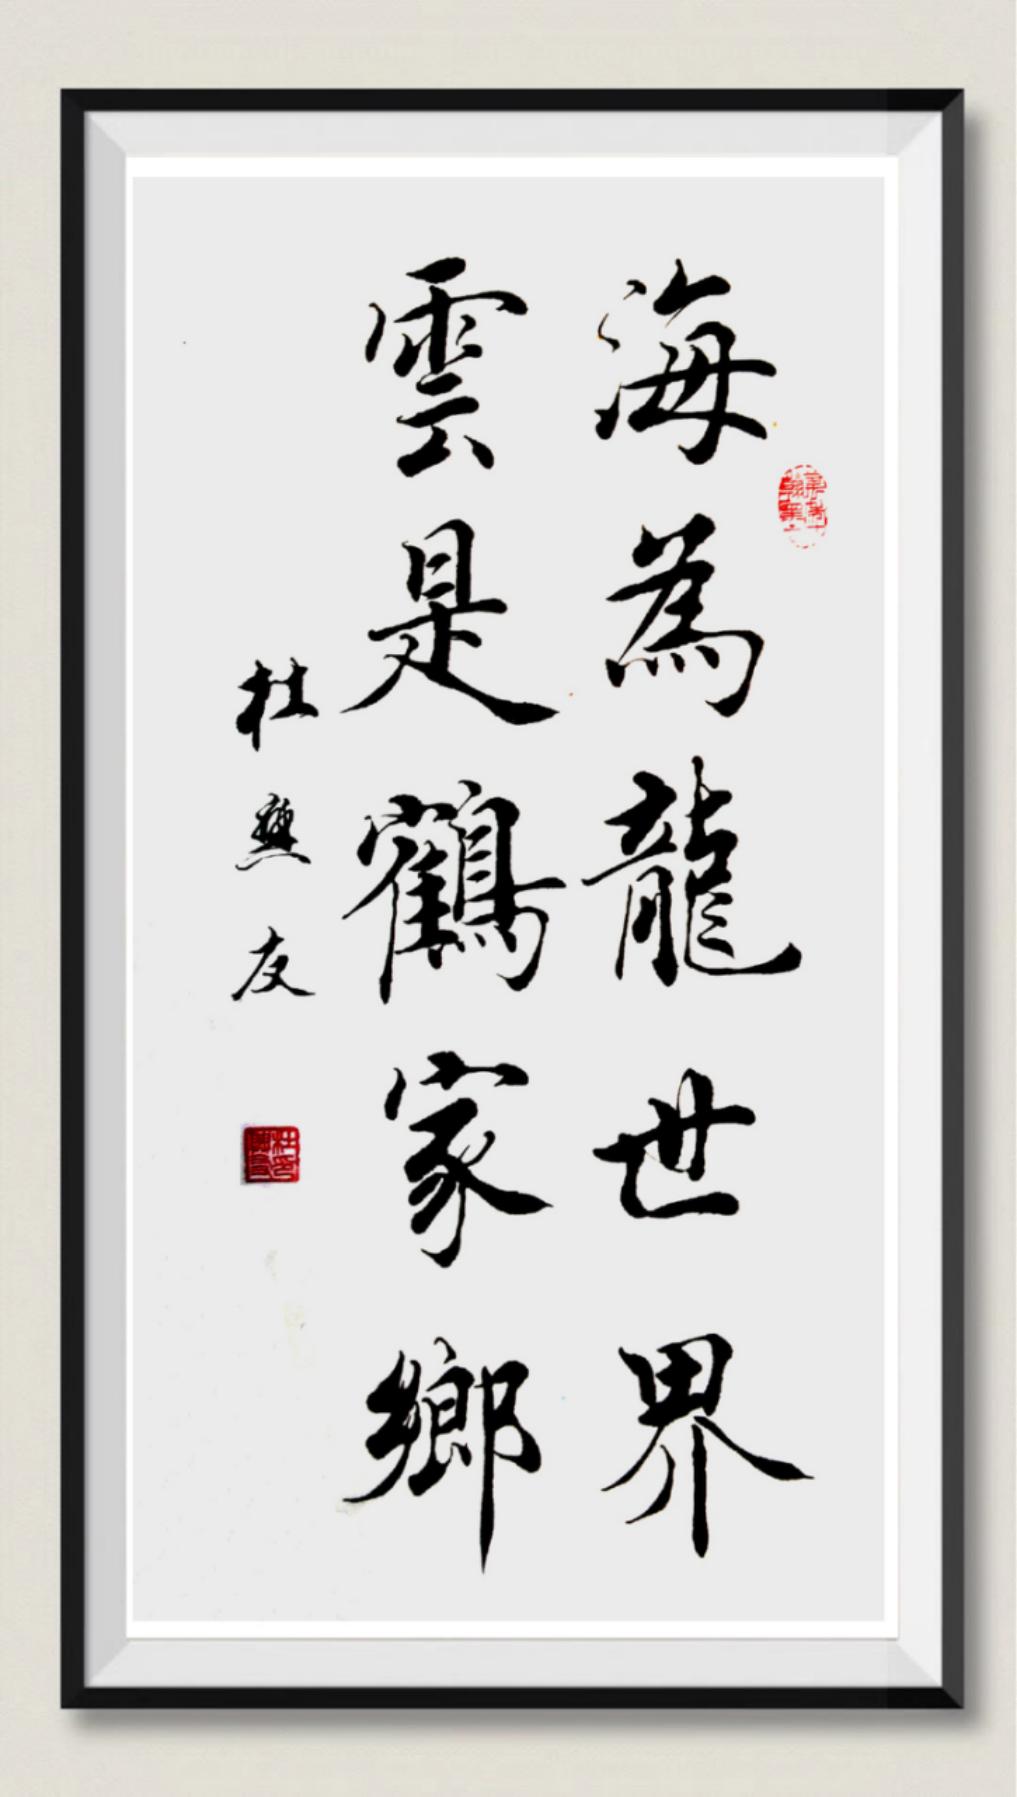 海為龍世界
雲是鶴家鄉
杜勲友